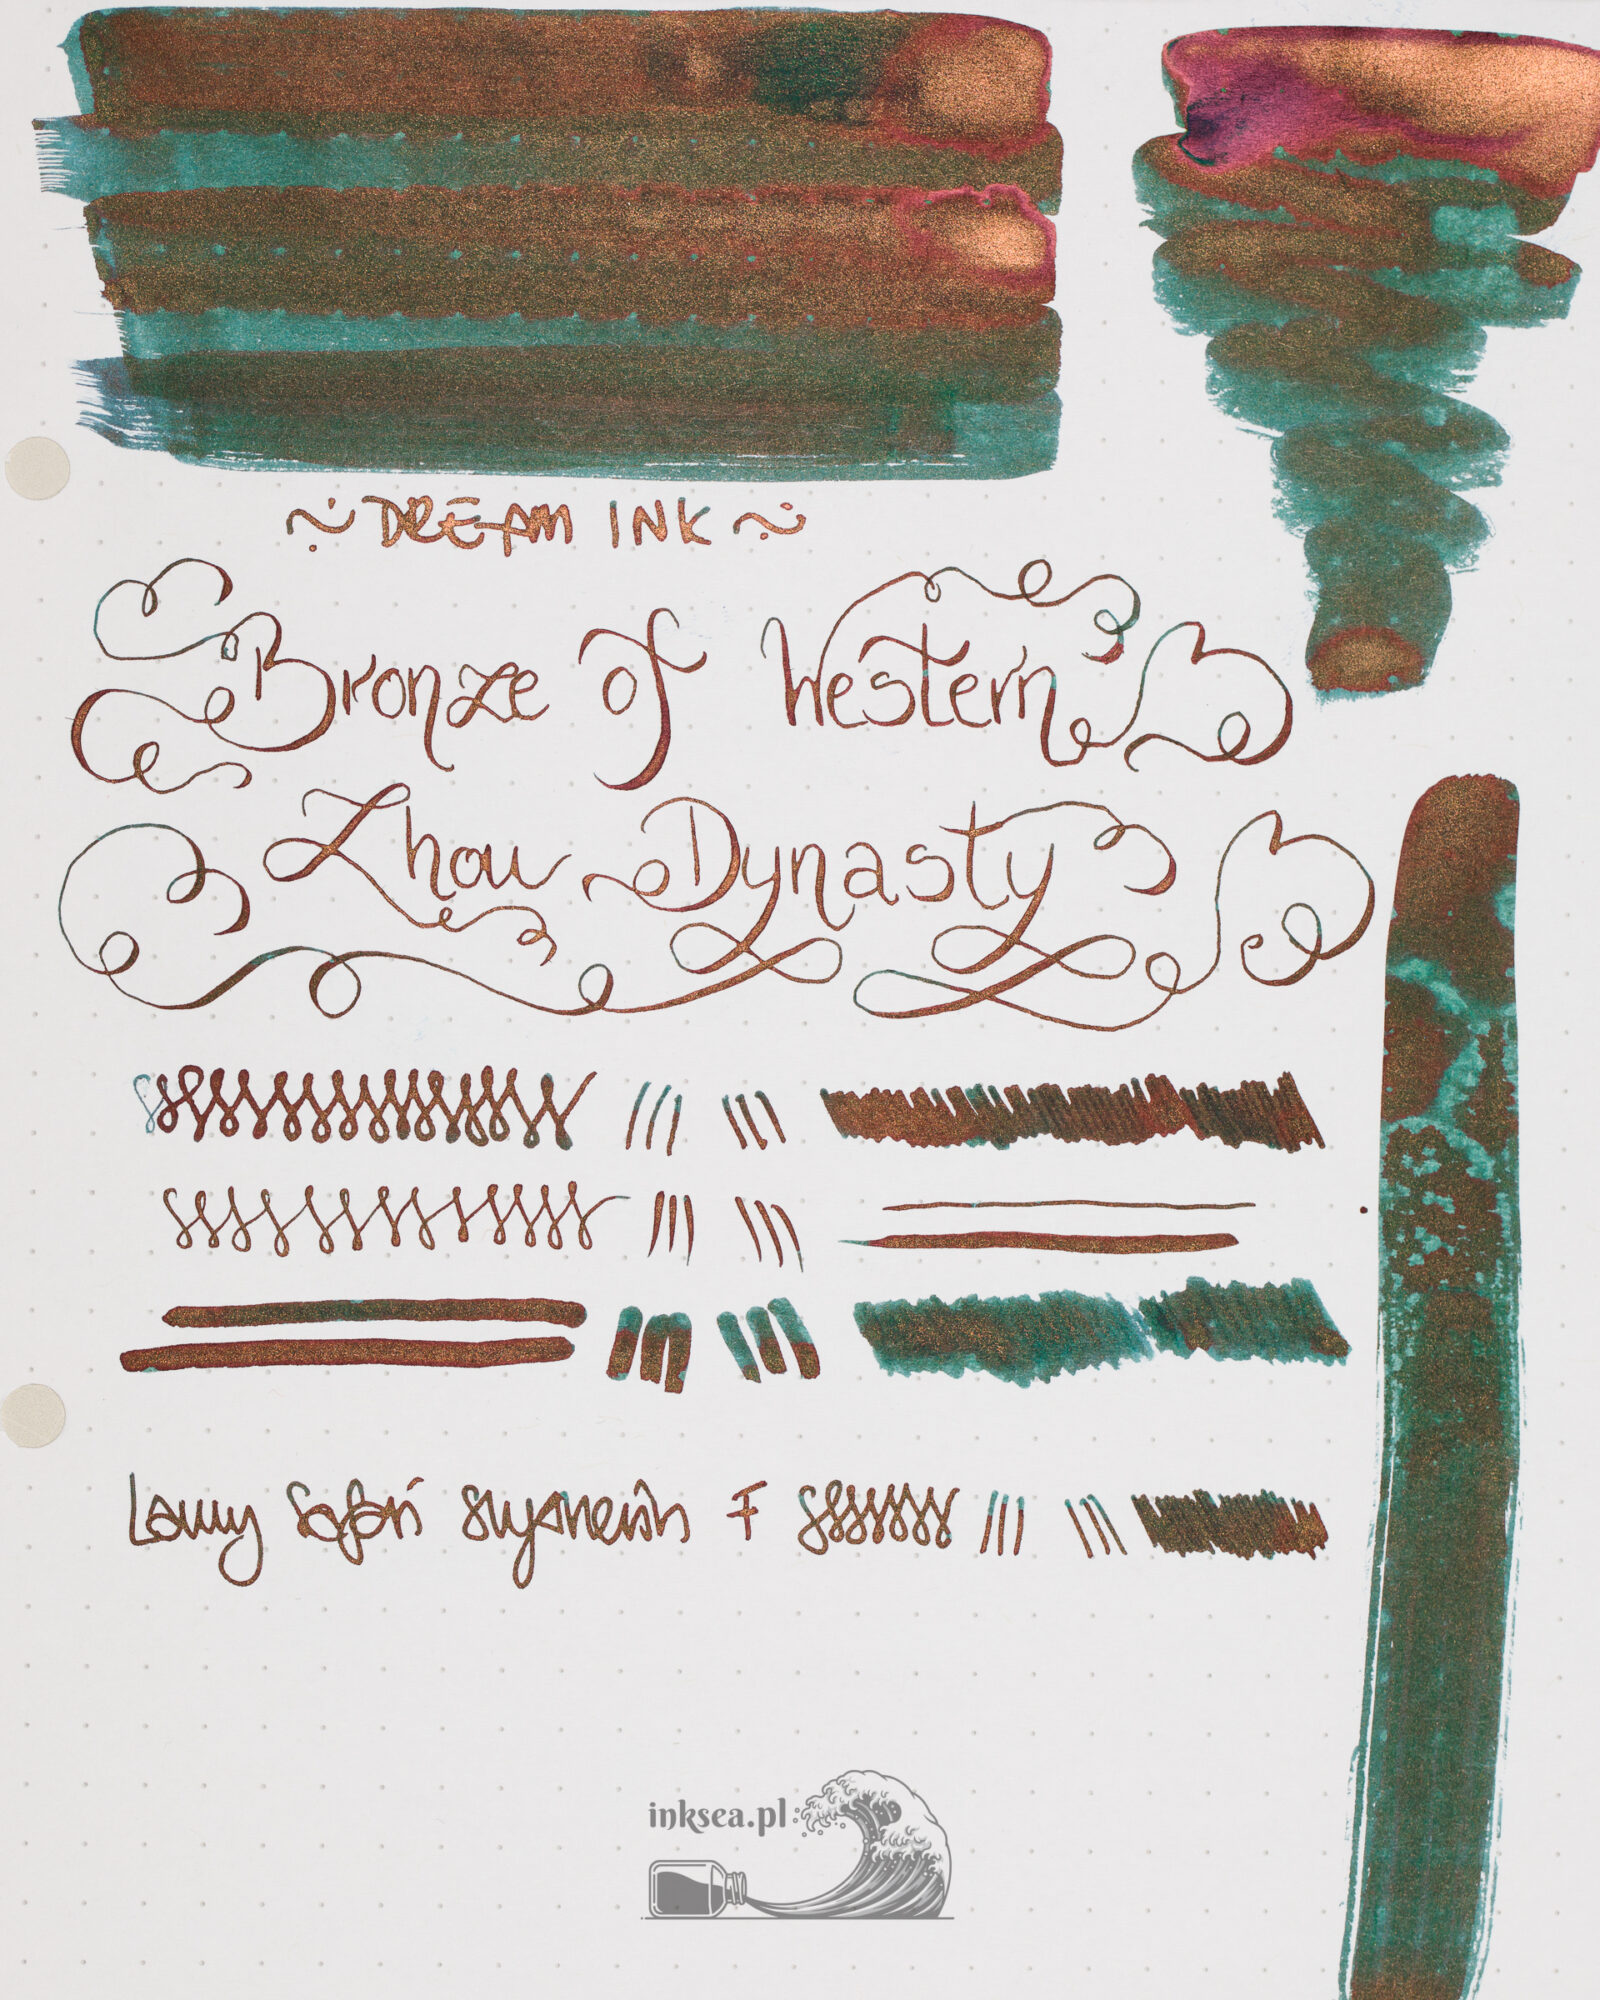 ~ DREAM INK ~
Bronze of Western
Zhou Dynasty
Lamy Safari F
inksea.pl